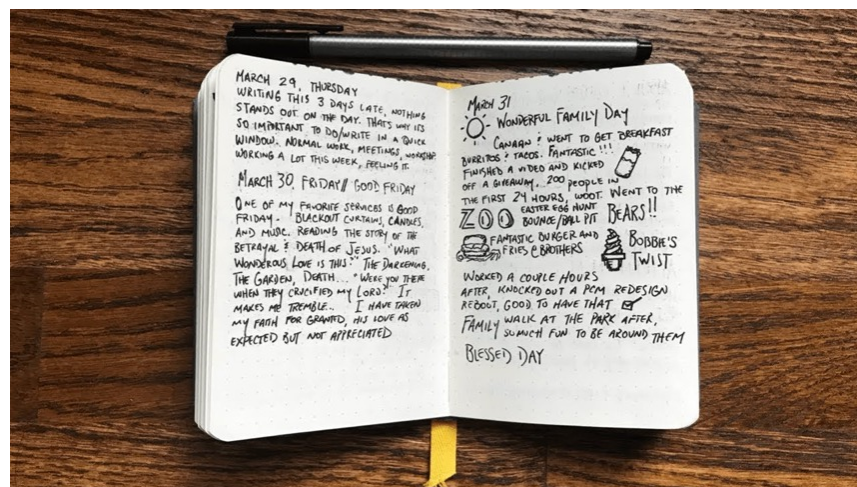 MARCH 29, THURSDAY
WRITING THIS 3 DAYS LATE, NOTHING
STANDS OUT ON THE DAY. THAT'S WHY IT'S
SO IMPORTANT TO DO/WRITE IN A QUICK
WINDOW. NORMAL WORK, MEETINGS, WORKSHOP
WORKING A LOT THIS WEEK, FEELING IT.
MARCH 30, FRIDAY // GOOD FRIDAY
ONE OF MY FAVORITE SERVICES IS GOOD
FRIDAY - BLACKOUT CURTAINS, CANDLES,
AND MUSIC. READING THE STORY OF THE
BETRAYAL & DEATH OF JESUS. "WHAT
WONDEROUS LOVE IS THIS." THE DARKENING.
THE GARDEN, DEATH... "WERE YOU THERE
WHEN THEY CRUCIFIED MY LORD?" IT
MAKES ME TREMBLE.. I HAVE TAKEN
MY FAITH FOR GRANTED, HIS LOVE AS
EXPECTED BUT NOT APPRECIATED
MARCH 31
WONDERFUL FAMILY DAY
CANAAN & WENT TO GET BREAKFAST
BURRITOS & TACOS. FANTASTIC!!!
FINISHED A VIDEO AND KICKED
OFF A GIVEAWAY. 200 PEOPLE IN
THE FIRST 24 HOURS, WOOT. WENT TO THE
ZOO EASTER EGG HUNT BEARS!!
BOUNCE/BALL PIT
FANTASTIC BURGER AND BOBBIE'S
FRIES @ BROTHERS TWIST
WORKED A COUPLE HOURS
AFTER, KNOCKED OUT A PCM REDESIGN
REBOUT, GOOD TO HAVE THAT
FAMILY WALK AT THE PARK AFTER,
SO MUCH FUN TO BE AROUND THEM
BLESSED DAY